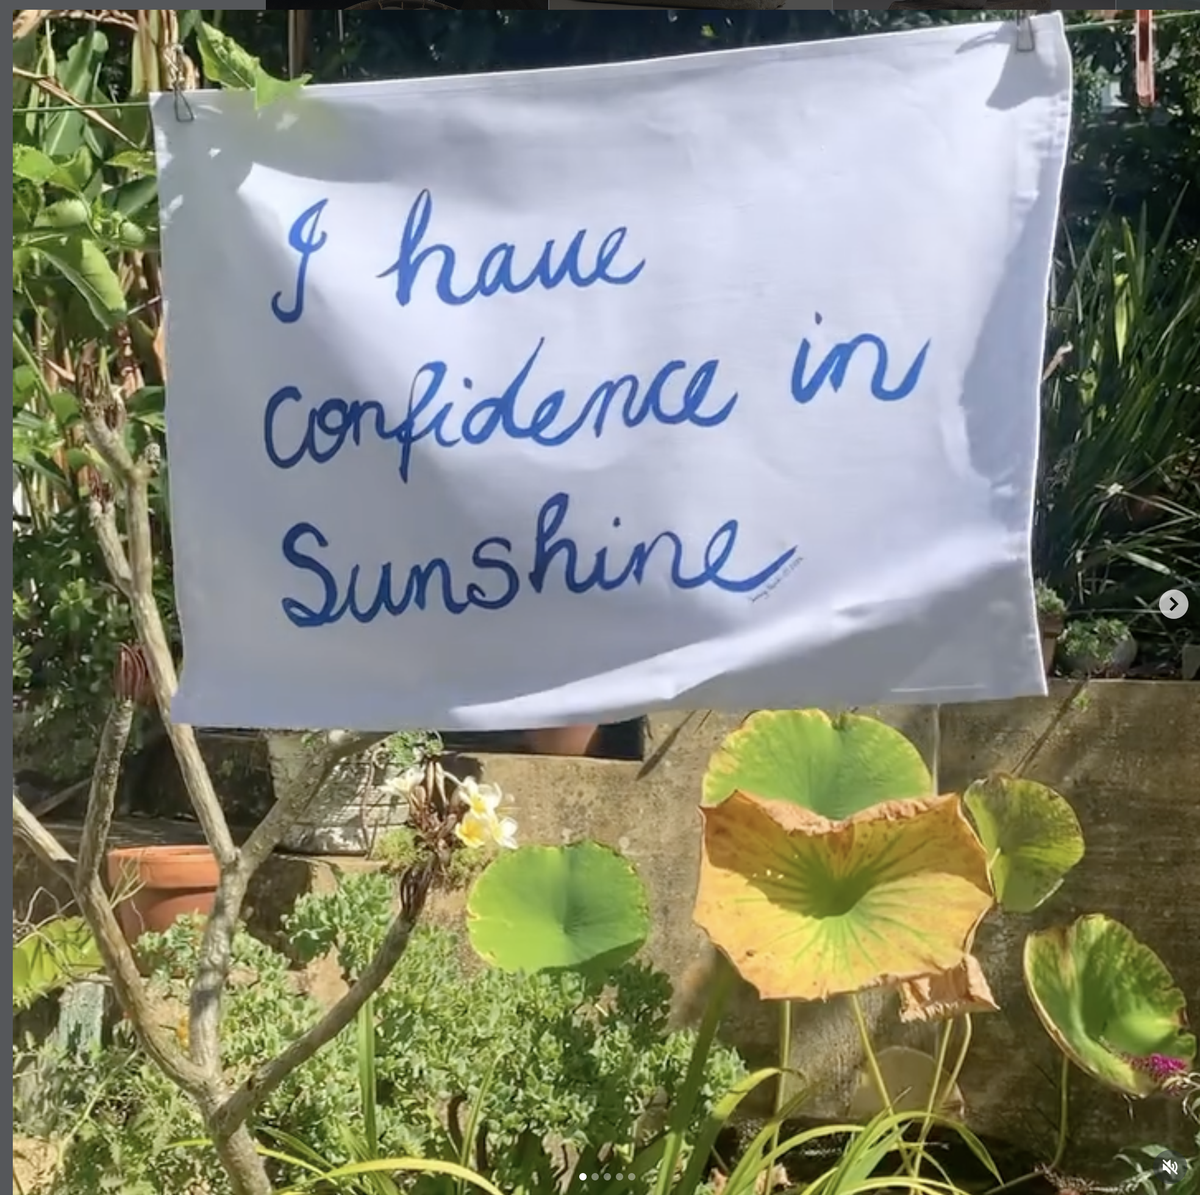 I have
confidence in
Sunshine